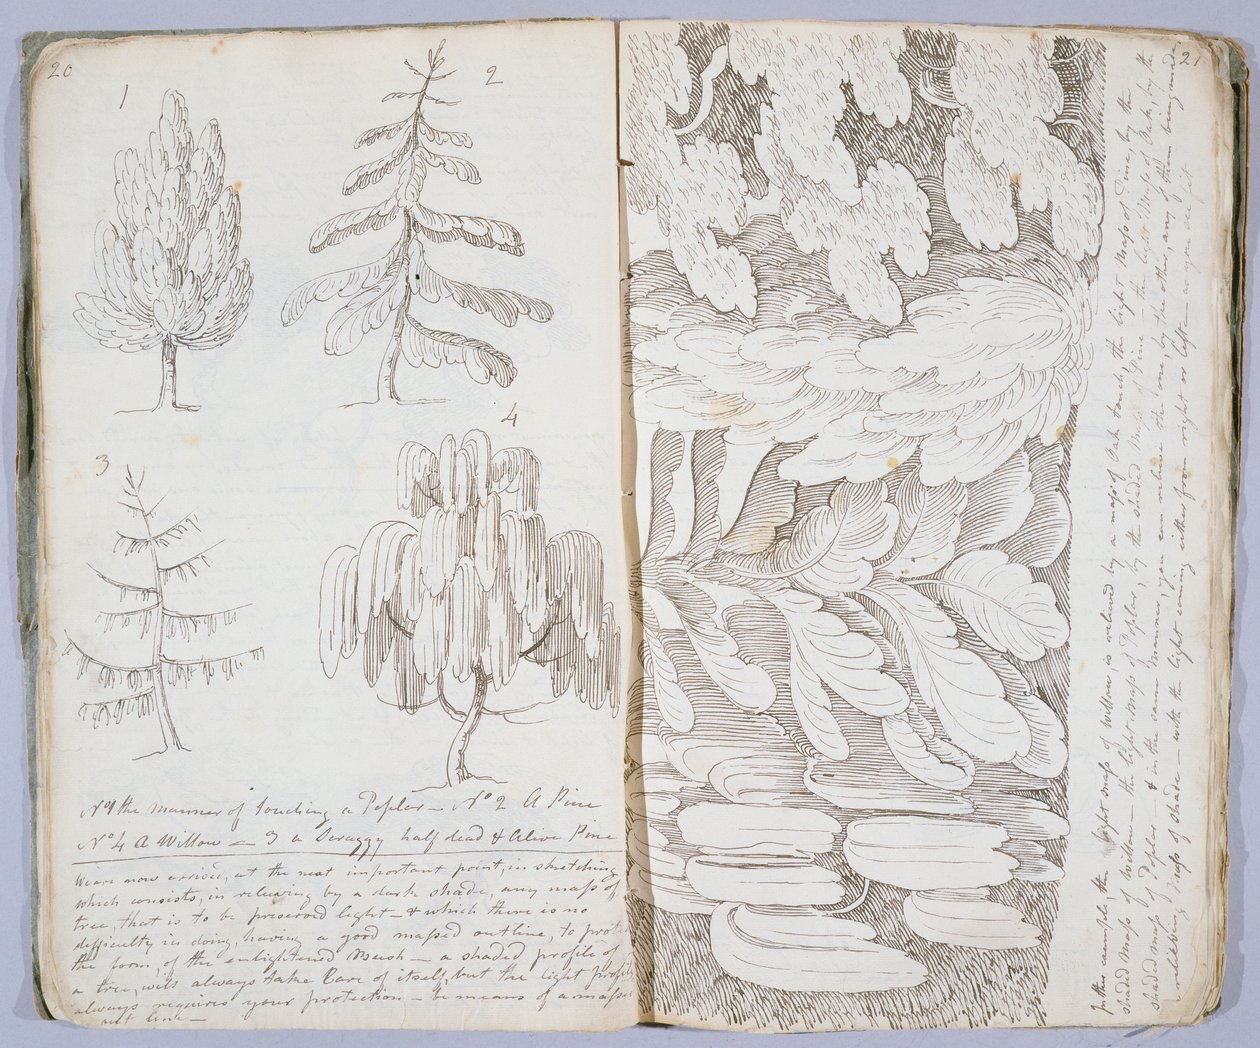 20
1
2
3
4
No 1 the manner of touching a Poplar — No 2 A Pine
No 4 A Willow — 3 a Scraggy half dead & Alive Pine
We are now arrived, at the next important point, in sketching
which consists, in relieving by a dark shade, any mass of
tree, that is to be preserved light — & which there is no
difficulty in doing, having a good massed outline, to protect
the form, of the enlightened — a shaded profile of
a tree, will always take Care of itself, but the light profile
always requires your protection — be means of a massed
out line —
21
In this example, the light mass of willow is relieved by a mass of Oak touch, the light Mass of Pine, by the
shaded mass of willow — the light mass of Poplar, by the shaded Mass of Pine — the light Mass of Oak, by the
shaded mass of Poplar — & in the same manner, you can relieve the one, by the other, any of them being made
a relieving Mass of shade — with the light coming either from right or left — as you see fit —